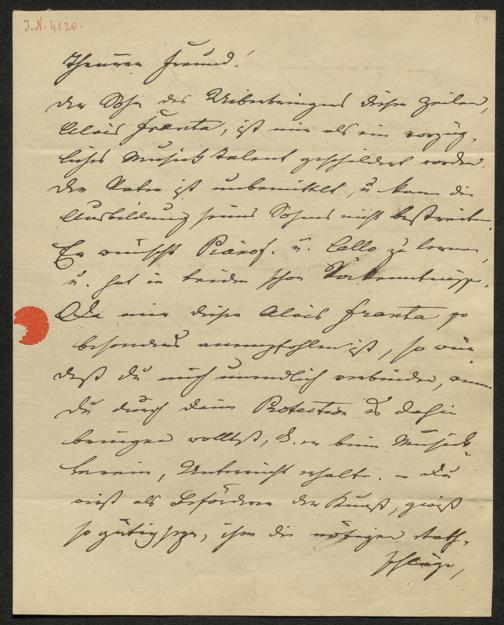 J.N. 4120.
Theurer Freund!
Der Sohn des Ueberbringers dieser Zeilen,
Alois Franta, ist mir als ein vorzüg-
liches Musick talent geschildert worden.
Der Vater ist unbemittelt, u. kann die
Ausbildung seines Sohnes nicht bestreiten.
Er wünscht Pianof. u. Cello zu lernen,
u. hat in beiden schon Vorkenntnisse.
Da mir dieser Alois Franta so
besonders anempfohlen ist, so wür-
dest du mich unendlich verbinden, wenn
Du durch deine Protection es dahin
bringen wolltest, d. er beim Musick
Verein, Unterricht erhalte. – Du
wirst als Beförderer der Kunst, gewiß
so gütig seyn, ihm die nöthigen Rath-
schläge,